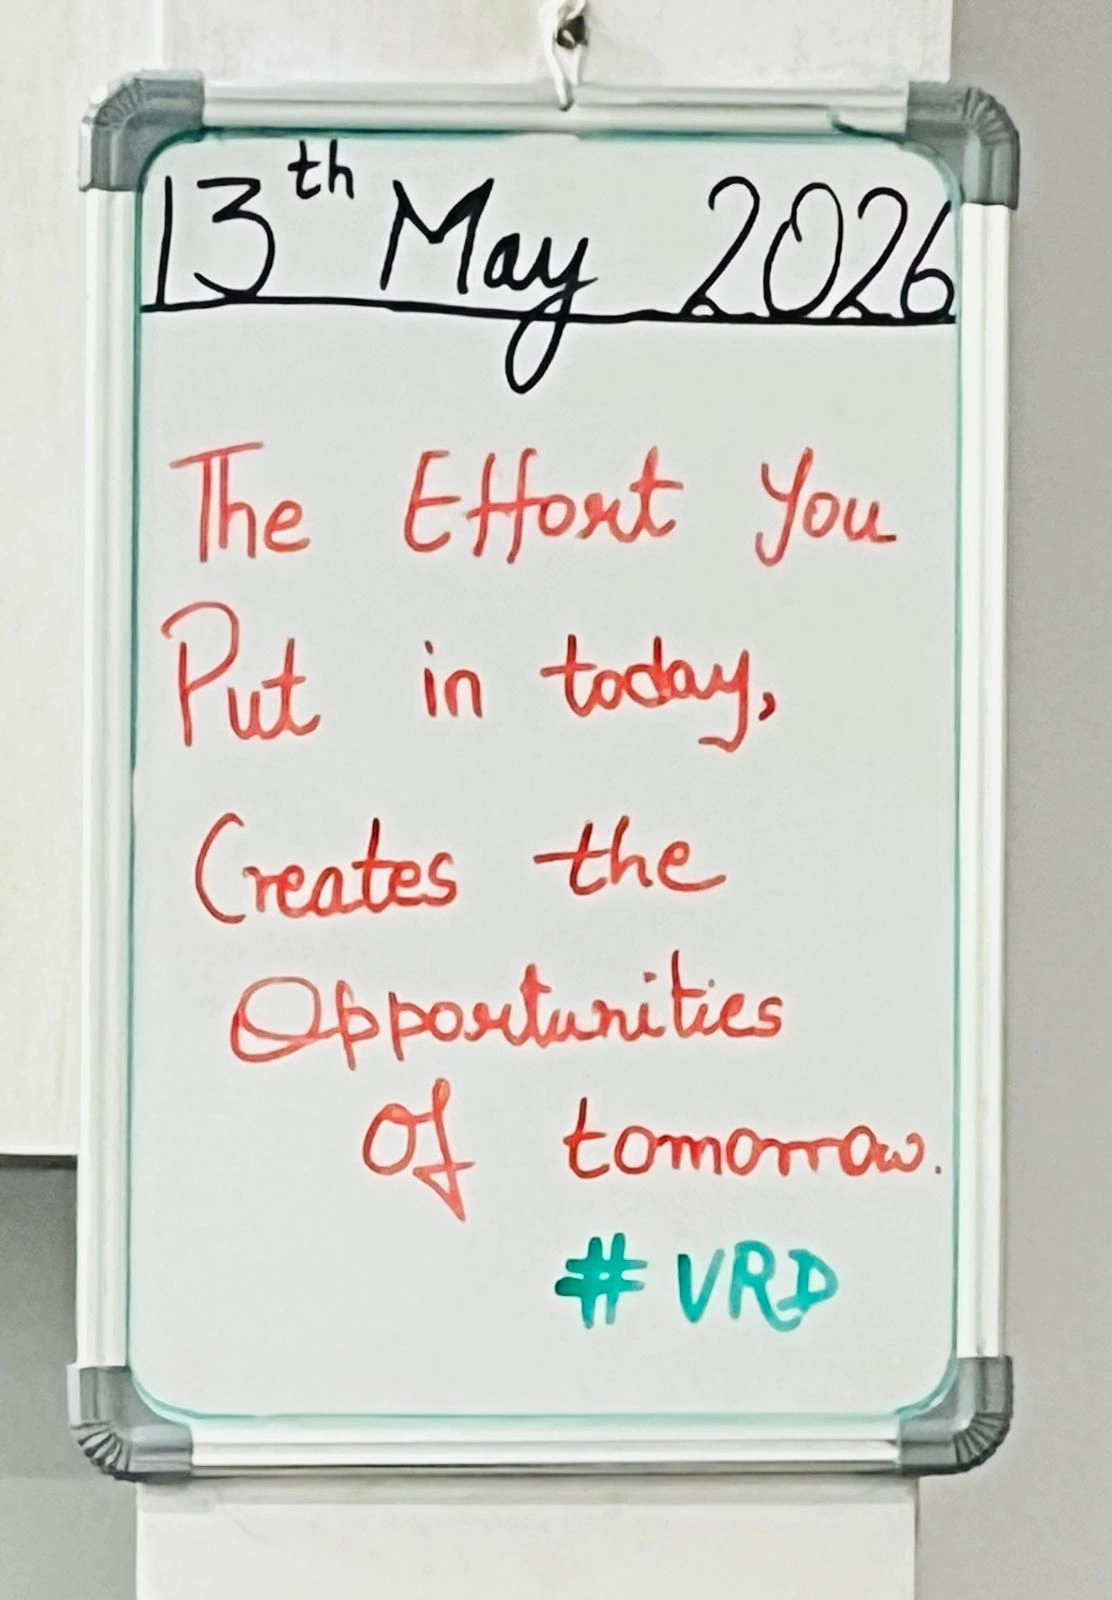 13th May 2026
The Effort You
Put in today,
Creates the
Opportunities
Of tomorrow.
# VRD